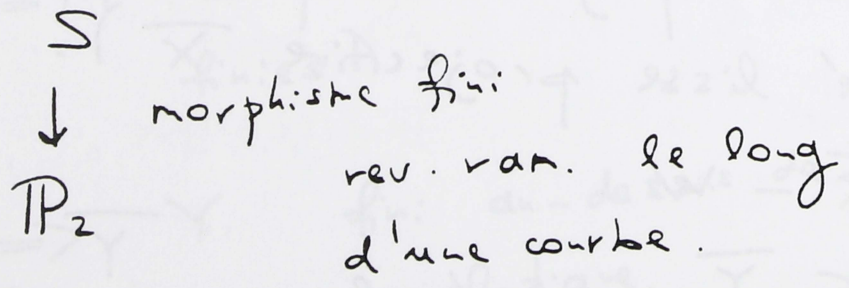 S
↓ morphisme fini
rev. ram. le long
ℙ₂
d'une courbe.